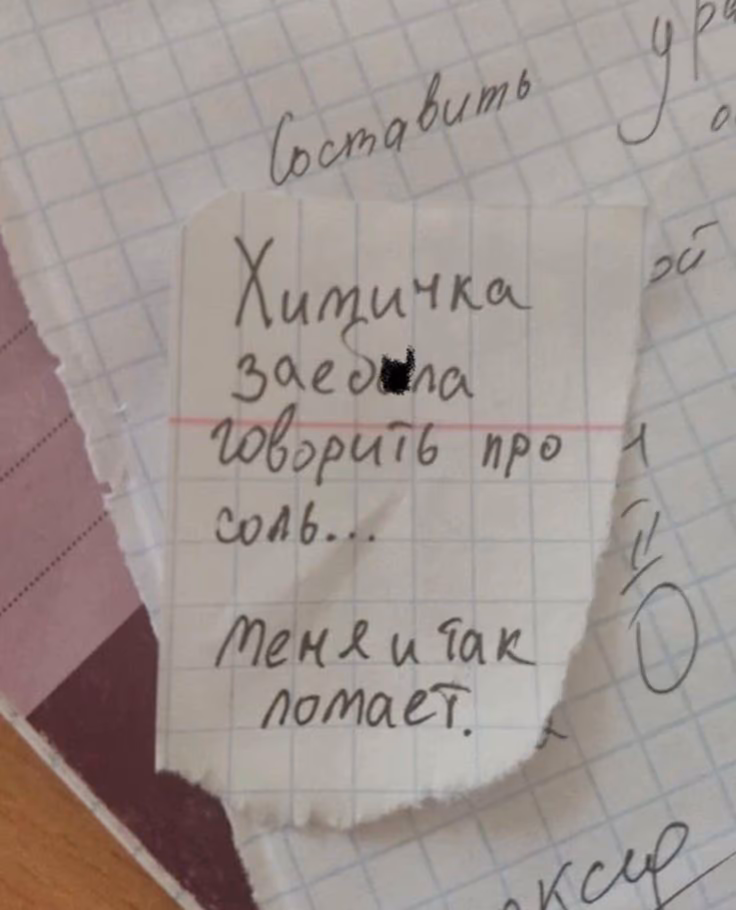 Составить
Химичка
заеб■ла
говорить про
соль...
меня и так
ломает.